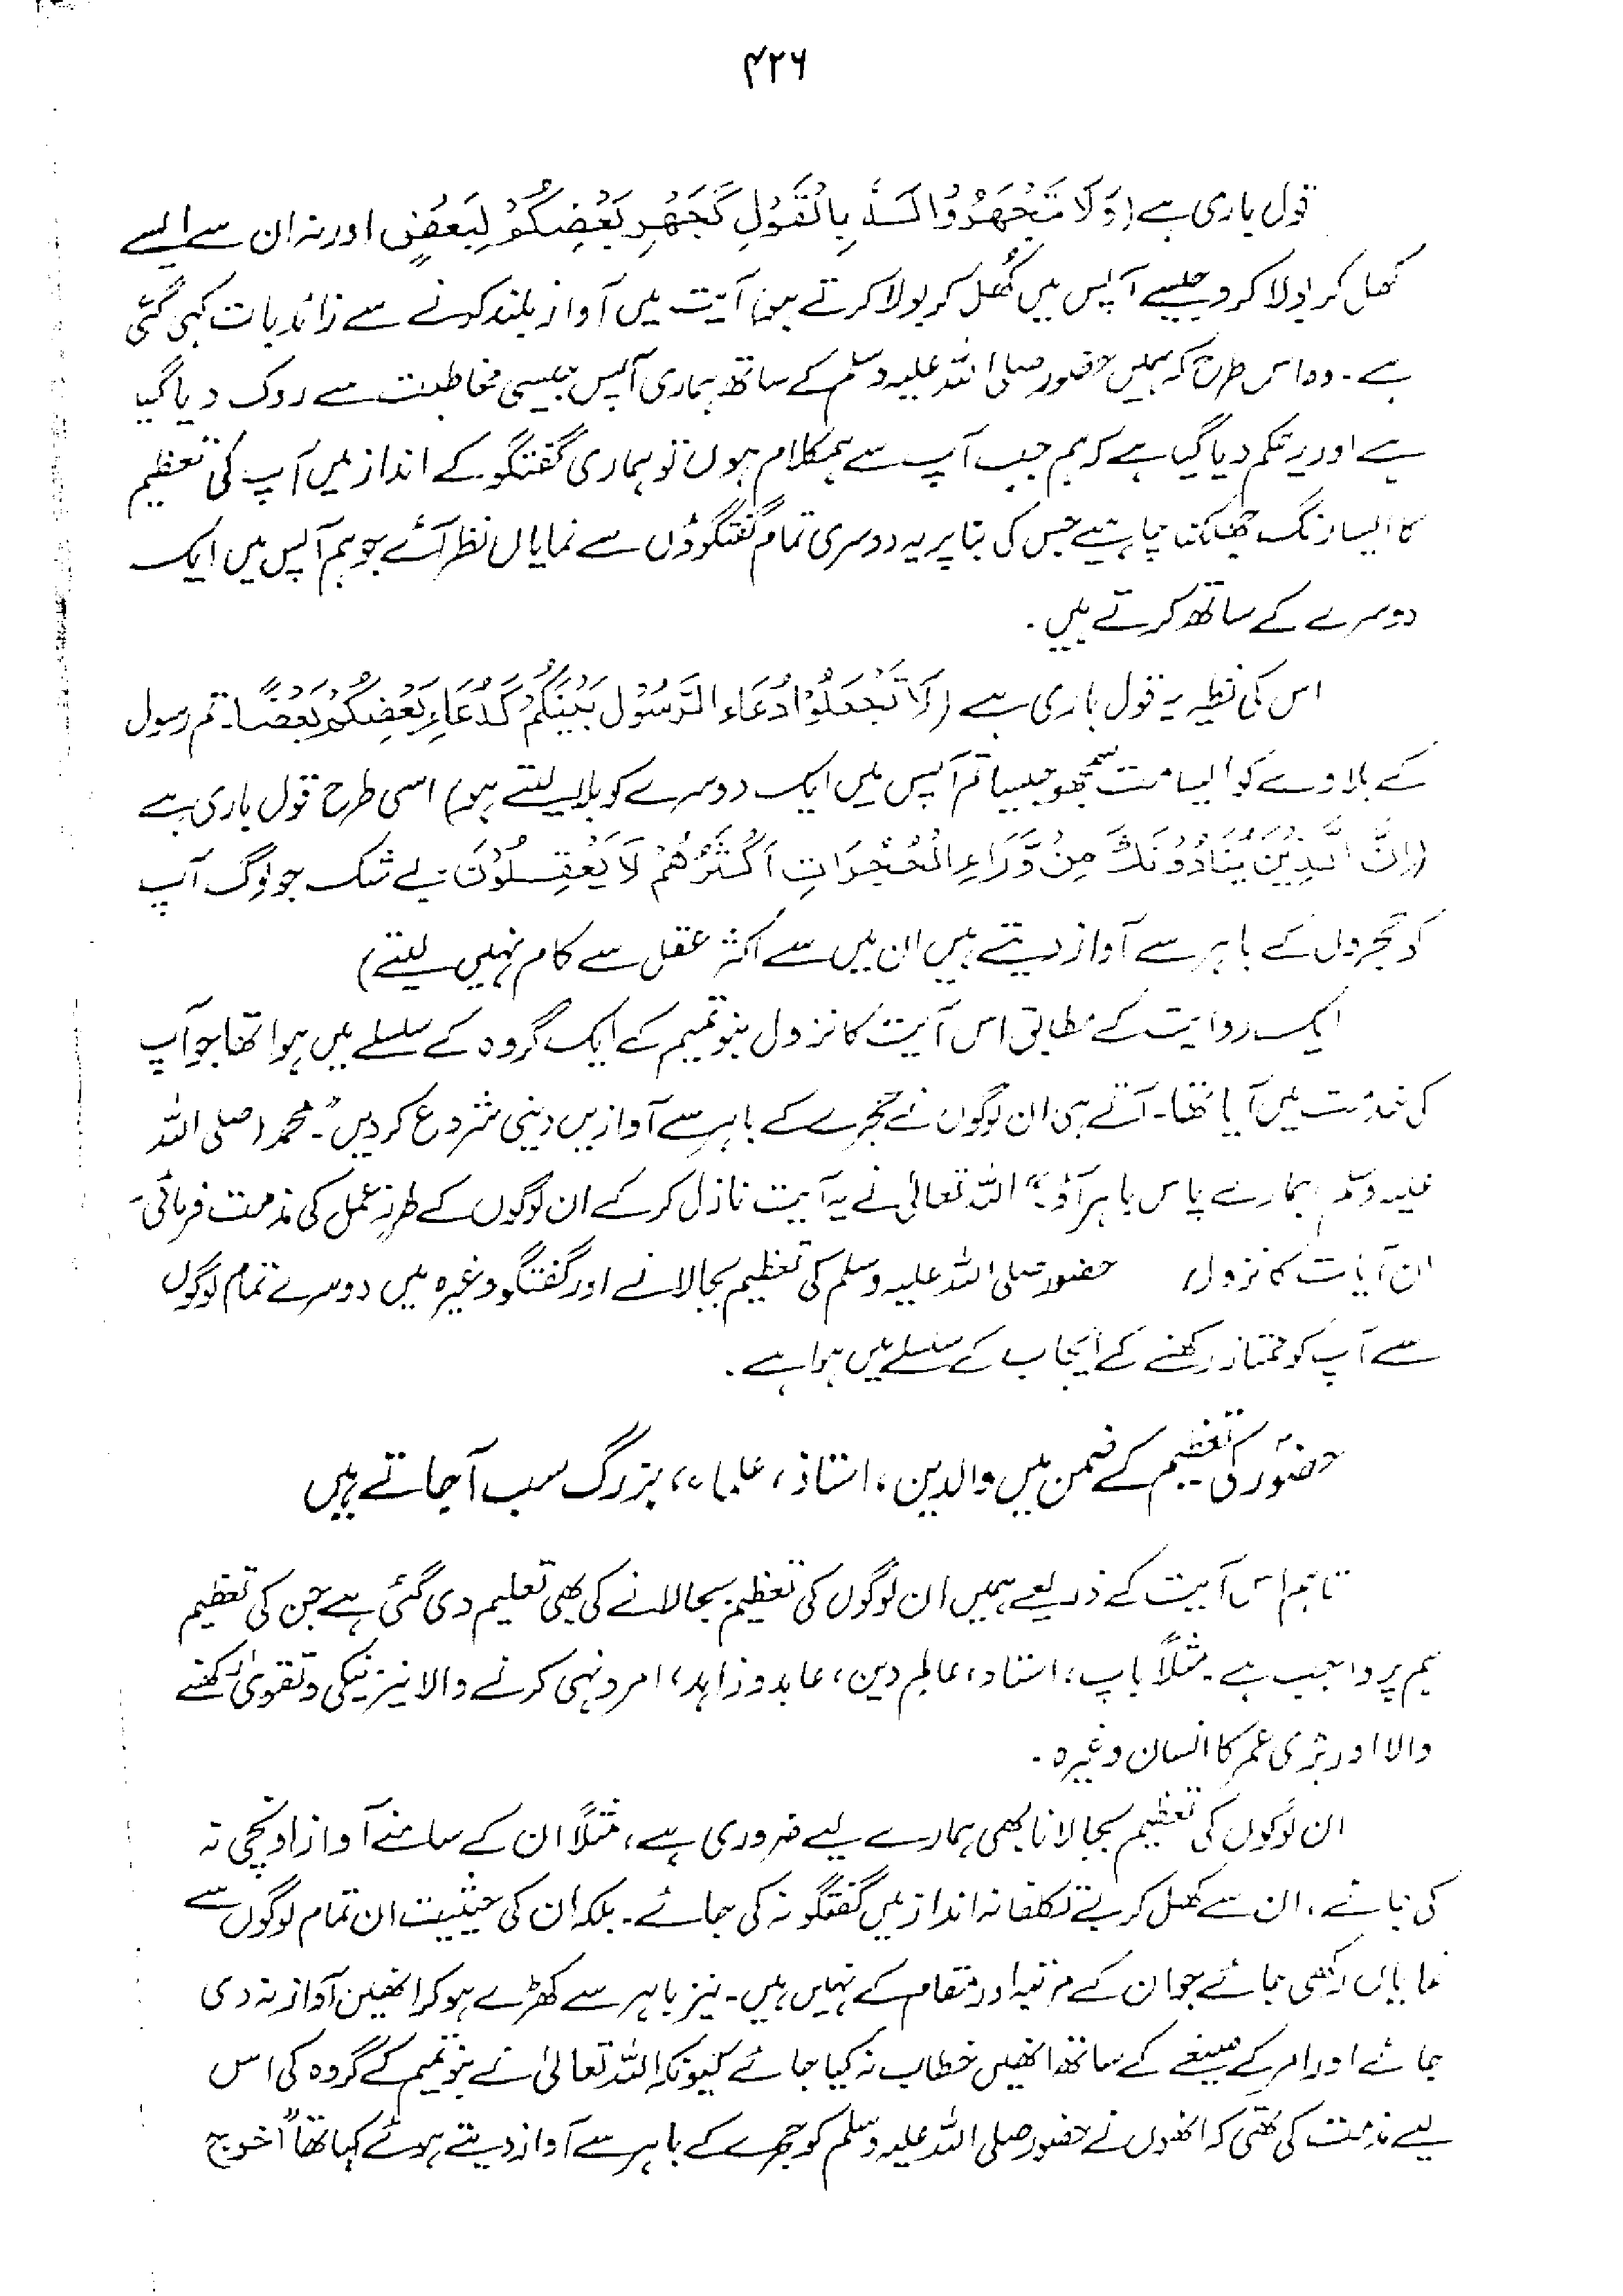 ۴۲۶
قول باری ہے (وَلَا تَجْهَرُوْا لَـهٗ بِالْقَوْلِ كَجَهْرِ بَعْضِكُمْ لِبَعْضٍ اور نہ ان سے ایسے
کھل کر بولا کرو جیسے آپس میں کُھل کر بولا کرتے ہو) آیت میں آواز بلند کرنے سے زائد بات کہی گئی
ہے۔ وہ اس طرح کہ ہمیں حضور صلی اللہ علیہ وسلم کے ساتھ ہماری آپس جیسی مخاطبت سے روک دیا گیا
ہے اور یہ حکم دیا گیا ہے کہ ہم جب آپ سے ہمکلام ہوں تو ہماری گفتگو کے انداز میں آپ کی تعظیم
کا ایسا رنگ جھلکنا چاہیئے جس کی بنا پر یہ دوسری تمام گفتگوؤں سے نمایاں نظر آئے جو ہم آپس میں ایک
دوسرے کے ساتھ کرتے ہیں۔
اس کی نظیر یہ قول باری ہے (لَا تَجْعَلُوْا دُعَاءَ الرَّسُوْلِ بَيْنَكُمْ كَدُعَاءِ بَعْضِكُمْ بَعْضًا۔ تم رسول
کے بلاوے کو ایسا مت سمجھو جیسا تم آپس میں ایک دوسرے کو بلا لیتے ہو) اسی طرح قول باری ہے
(اِنَّ الَّذِيْنَ يُنَادُوْنَكَ مِنْ وَّرَاءِ الْحُجُرَاتِ اَكْثَرُهُمْ لَا يَعْقِلُوْنَ۔ بے شک جو لوگ آپ
کو حجروں کے باہر سے آواز دیتے ہیں ان میں سے اکثر عقل سے کام نہیں لیتے)
ایک روایت کے مطابق اس آیت کا نزول بنو تمیم کے ایک گروہ کے سلسلے میں ہوا تھا جو آپ
کی خدمت میں آیا تھا۔ آتے ہی ان لوگوں نے حجرے کے باہر سے آوازیں دینی شروع کر دیں "۔ محمد (صلی اللہ
علیہ وسلم) ہمارے پاس باہر آؤ۔" اللہ تعالیٰ نے یہ آیت نازل کر کے ان لوگوں کے طرزِ عمل کی مذمت فرمائی۔
ان آیات کا نزول، حضور صلی اللہ علیہ وسلم کی تعظیم بجا لانے اور گفتگو وغیرہ میں دوسرے تمام لوگوں
سے آپ کو ممتاز رکھنے کے ایجاب کے سلسلے میں ہوا ہے۔
حضورؐ کی تعظیم کے ضمن میں والدین، استاذ، علماء، بزرگ سب آ جاتے ہیں
تاہم اس آیت کے ذریعے ہمیں ان لوگوں کی تعظیم بجا لانے کی بھی تعلیم دی گئی ہے جن کی تعظیم
ہم پر واجب ہے۔ مثلاً باپ، استاد، عالم دین، عابد و زاہد، امر و نہی کرنے والا نیز نیکی و تقویٰ رکھنے
والا اور بڑی عمر کا انسان وغیرہ۔
ان لوگوں کی تعظیم بجا لانا بھی ہمارے لیے ضروری ہے، مثلاً ان کے سامنے آواز اونچی نہ
کی جائے، ان سے کھل کر بے تکلفانہ انداز میں گفتگو نہ کی جائے۔ بلکہ ان کی حیثیت ان تمام لوگوں سے
نمایاں رکھی جائے جو ان کے مرتبہ اور مقام کے نہیں ہیں۔ نیز باہر سے کھڑے ہو کر انھیں آواز نہ دی
جائے اور امر کے صیغے کے ساتھ انھیں خطاب نہ کیا جائے کیونکہ اللہ تعالیٰ نے بنو تمیم کے گروہ کی اس
لیے مذمت کی تھی کہ انھوں نے حضور صلی اللہ علیہ وسلم کو حجرے کے باہر سے آواز دیتے ہوئے کہا تھا "اخرج